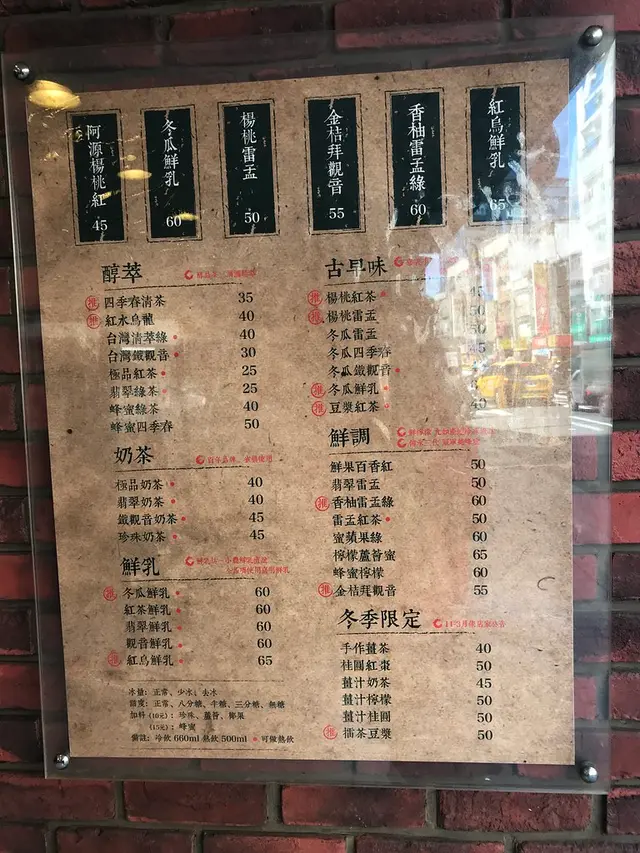 阿源楊桃紅 45
冬瓜鮮乳 60
楊桃雷盃 50
金桔拜觀音 55
香柚雷盃綠 60
紅烏鮮乳 65
醇萃
推 四季春清茶 35
推 紅水烏龍 40
台灣清萃綠 40
台灣鐵觀音 30
極品紅茶 25
翡翠綠茶 25
蜂蜜綠茶 40
蜂蜜四季春 50
奶茶 百年品牌
極品奶茶 40
翡翠奶茶 40
鐵觀音奶茶 45
珍珠奶茶 45
鮮乳
推 冬瓜鮮乳 60
紅茶鮮乳 60
翡翠鮮乳 60
觀音鮮乳 60
推 紅烏鮮乳 65
冰量：正常、少冰、去冰
甜度：正常、八分糖、半糖、三分糖、無糖
加料 (10元)：珍珠、蘆薈、椰果
(15元)：蜂蜜
備註：冷飲 660ml 熱飲 500ml 可做熱飲
古早味
推 楊桃紅茶 45
推 楊桃雷盃 50
冬瓜雷盃 50
冬瓜四季春 45
冬瓜鐵觀音
推 冬瓜鮮乳
推 豆漿紅茶 40
鮮調
鮮果百香紅 50
翡翠雷盃 50
推 香柚雷盃綠 60
雷盃紅茶 50
蜜蘋果綠 60
檸檬蘆薈蜜 65
蜂蜜檸檬 60
推 金桔拜觀音 55
冬季限定
手作薑茶 40
桂圓紅棗 50
薑汁奶茶 45
薑汁檸檬 50
薑汁桂圓 50
推 擂茶豆漿 50